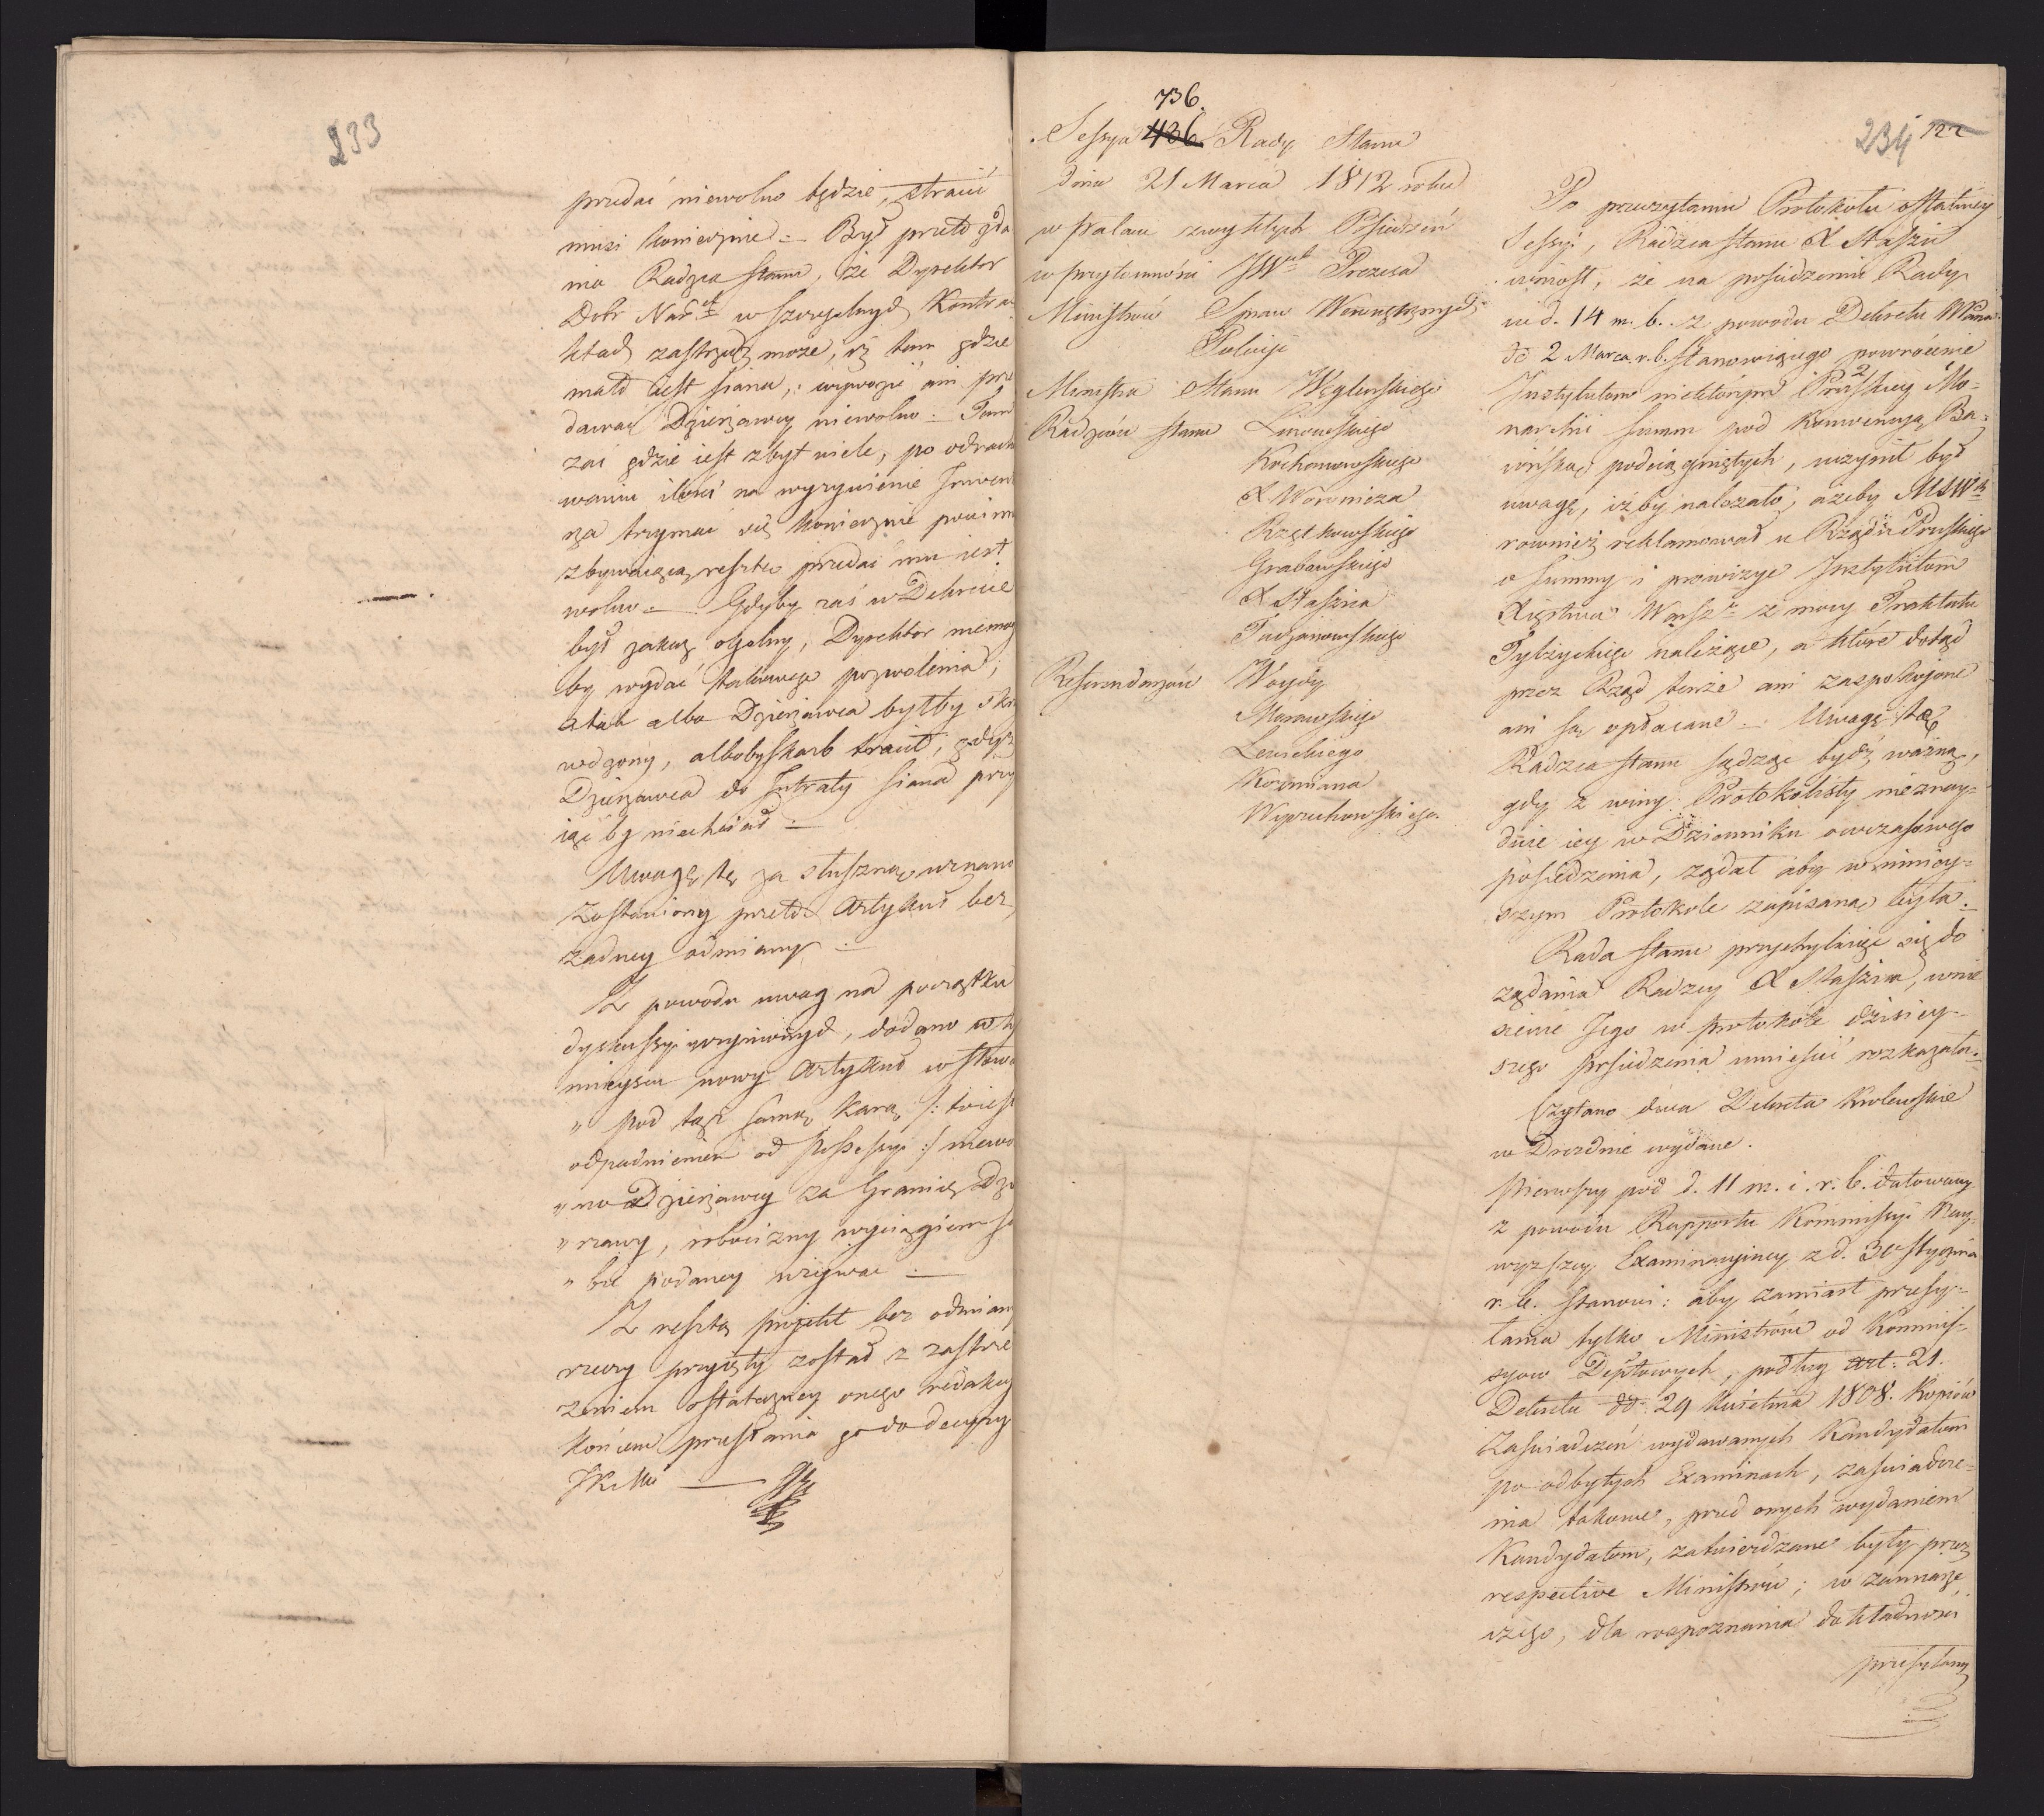 233
przedać niewolno będzie, stracić
musi koniecznie. – Był przeto zda
nia Radzca Stanu, że Dyrektor
Dobr Nar. w szczególnych Kontra
ktach zastrzedz może, iż tam gdzie
mało iest siana, wywozić ani prze
dawać Dzierżawcy niewolno. – Tam
zaś gdzie iest zbyt wiele, po odracho
waniu ilości na wyżywienie Inwen
rza trzymać się koniecznie powinn
zbywaiącą resztę przedać mu iest
wolno. – Gdyby zaś w Dekrecie
był zakaz ogólny, Dyrektor niemóg
by wydać takowego pozwolenia,
a tak albo Dzierżawca byłby skrz
wdzony, alboby Skarb tracił, gdyż
Dzierżawca do Intraty siana przy
iąć by niechciał. –
Uwagę tę za słuszną uznano
Zostawiony przeto Artykuł bez
żadney odmiany. –
Z powodu uwag na początku
dyskussyi uczynionych, dodano w ty
mieyscu nowy Artykuł w słowa
„ pod tąż samą karą /: to iest
odpadnieniem od Possessyi :/ niewo
„ no Dzierżawcy za Granicę Dzi
„ rżawy, robocizny wyciągiem so
„ bie podaney używać. –
Z resztą projekt bez odmiany
rzeczy przyięty został z zastrze
żeniem ostateczney onego redakcyi
końcem przesłania go do decyzyi
JKMci —
736.
Sessya 436 Rady Stanu
dnia 21 Marca 1812 roku
w Pałacu zwykłych Posiedzeń
w przytomności JW Prezesa
Ministrów Spraw Wewnętrznych
Policyi
Ministra Stanu Węgleńskiego
Radzców Stanu Linowskiego
Kochanowskiego
X Woronicza
Rzętkowskiego
Grabowskiego
X Staszica
Tadzanowskiego
Referendarzów Woydy
Morawskiego
Lewickiego
Koźmiana
Wyczechowskiego.
234 122
Po przeczytaniu Protokółu ostatniey
Sessyi, Radzca Stanu X Staszic
wniosł, że na posiedzeniu Rady
w d. 14 m. b. z powodu Dekretu
dd 2 Marca r. b. stanowiącego powrócenie
Instytutom niektórym Pruskiey Mo-
narchii Summ pod Konwencyą Ba-
iońską podciągniętych, uczynił był
uwagę, iżby należało, ażeby MSW
rownież reklamował u Rządu Pruskiego
o Summy i prowizye Instytutom
Xięstwa Warsz. z mocy Traktatu
Tylżyckiego należące, a które dotąd
przez Rząd tenże ani zaspokojone
ani są opłacane. – Uwagę tę
Radzca Stanu sądząc bydź ważną,
gdy z winy Protokolisty nieznay-
duie iey w Dzienniku owczasowego
posiedzenia, żądał aby w niniey-
szym Protokóle zapisaną była. –
Rada Stanu przychylaiąc się do
żądania Radzcy X Staszica, wnie
sienie Jego w protokóle dzisiey-
szego posiedzenia umieścić rozkazała. –
Czytano dwa Dekreta Krolewskie
w Dreznie wydane.
Pierwszy pod d. 11 m. i. r. b. datowany
z powodu Rapportu Kommissyi Nay-
wyższey Examinacyiney z d. 30 Stycznia
r. b. stanowi: aby zamiast przesy-
łania tylko Ministrów od Kommis-
syow Deptowych, podług Art: 21.
Dekretu dd: 29 Kwietnia 1808. Kopiów
Zaświadczeń wydawanych Kandydatom
po odbytych Examinach, zaświadcze-
nia takowe, przed onych wydaniem
Kandydatom, zatwierdzane były przez
respective Ministrów; w zamiarze
czego, dla rozpoznania dokładności
przesyłany